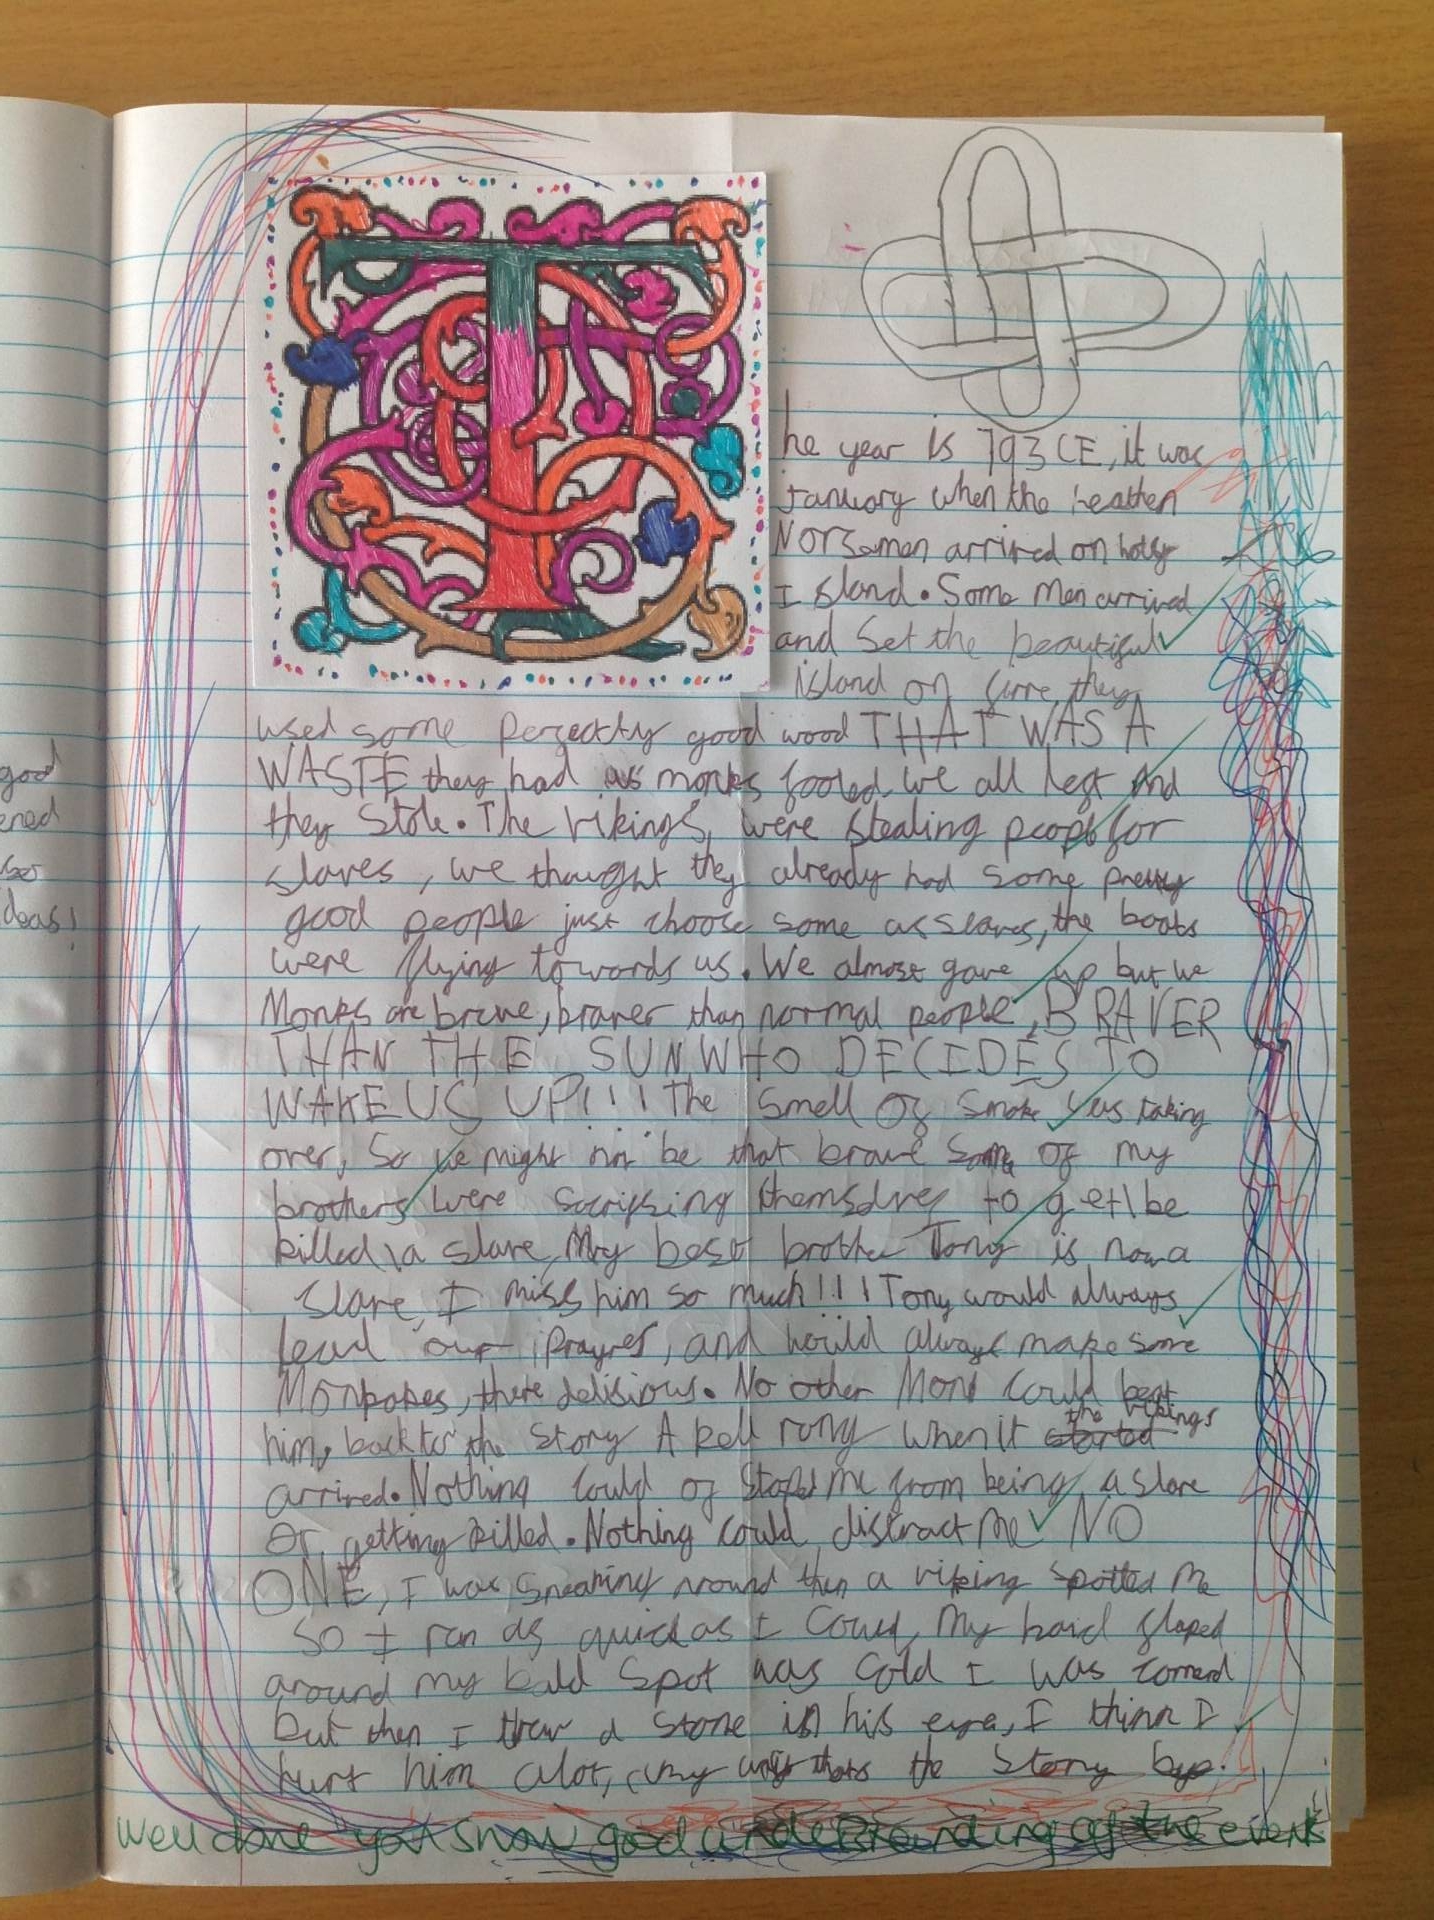 T
he year is 793 CE, it was
January when the heathen
Norsemen arrived on holy
Island. Some men arrived
and set the beautiful
island on firre, they
used some perfectly good wood THAT WAS A
WASTE they had us monks fooled, we all left And
they stole. The vikings, were stealing peopl for
slaves, we thought they already had some pretty
good people just choose some as slaves, the boats
were flying towards us. We almost gave up but we
Monks are brave, braver than normal people, BRAVER
THAN THE SUN WHO DECIDES TO
WAKE US UP!!! The smell of smoke was taking
over, So we might not be that brave some of my
brothers were themselves to get\be
killed\a slave, My best brother Tony is now a
slave, I miss him so much!!! Tony would always
lead our prayres, and would always make some
there delisious. No other Monk could beat
him, back to the story A bell rang when it started the vikings
arrived. Nothing could of stopd me from being a slave
Or getting killed. Nothing could distract me NO
ONE, I was sneaking around then a viking spotted me
so I ran as quick as I could, My haid slaped
around my bald spot was cold I was cornerd
but then I thrw a stone in his eye, I think I
hurt him alot, any ways thats the story bye.
Well done you show good understanding of the events
good
ened
deas!